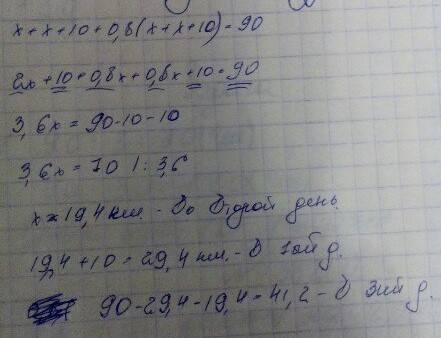 x + x + 10 + 0,8(x + x + 10) = 90
2x + 10 + 0,8x + 0,8x + 10 = 90
3,6x = 90 - 10 - 10
3,6x = 70 | : 3,6
x ≈ 19,4 км. - во второй день.
19,4 + 10 = 29,4 км. - в 1ый д.
90 - 29,4 - 19,4 = 41,2 - в 3ий д.